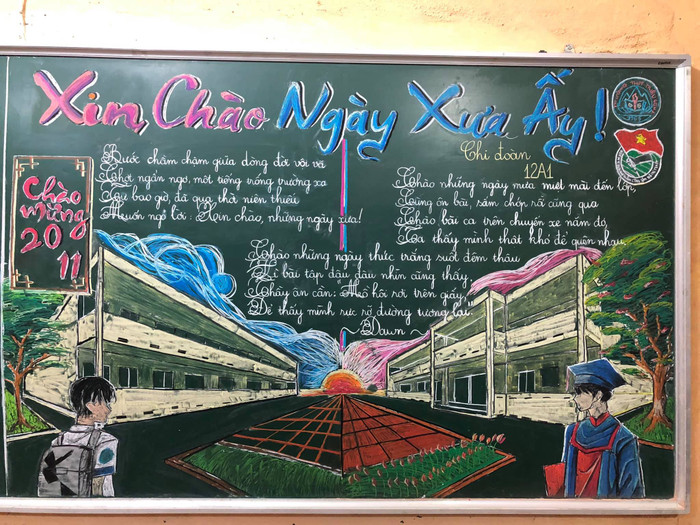 Xin Chào Ngày Xưa Ấy!
Chi đoàn
12A1
Chào mừng
20
11
Bước chầm chậm giữa dòng đời vội vã
Chợt ngẩn ngơ, một tiếng trống trường xa
Từ bao giờ, đã qua thời niên thiếu
Muốn ngỏ lời: Xin chào, những ngày xưa!
Chào những ngày mưa miệt mài đến lớp,
Cùng ôn bài, sấm chớp rã cũng qua
Chào bài ca trên chuyến xe năm đó,
Ta thấy mình thật khó để quên nhau.
Chào những ngày thức trắng suốt đêm thâu
Vì bài tập dẫu đau nhìn cũng thấy,
Thầy ân cần: Mồ hôi rơi trên giấy,
Để thấy mình rực rỡ đường tương lai
~ Dawn ~